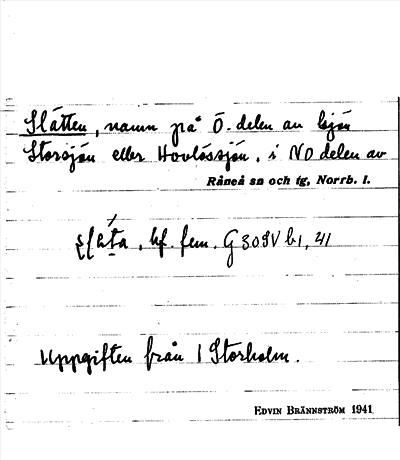 Slåtten, namn på Ö. delen av sjön
Storsjön eller Hovlössjön, i NO delen av
Råneå sn och tg, Norrb. l.
bf. fem. G 309V b1, 41
Uppgiften från 1 Storholm.
EDVIN BRÄNNSTRÖM 1941